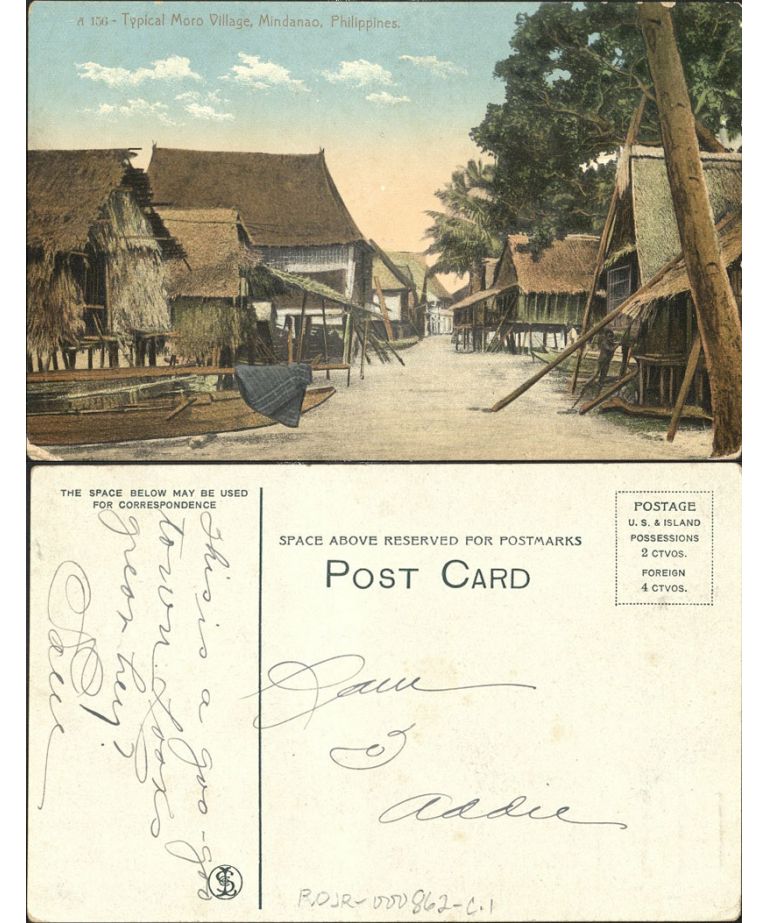 A 156 - Typical Moro Village, Mindanao, Philippines.
THE SPACE BELOW MAY BE USED
FOR CORRESPONDENCE
This is a goo-goo
town. Looks
great hey?
SPACE ABOVE RESERVED FOR POSTMARKS
POST CARD
POSTAGE
U. S. & ISLAND
POSSESSIONS
2 CTVOS.
FOREIGN
4 CTVOS.
to
Addie
RDJR-000862-C.1